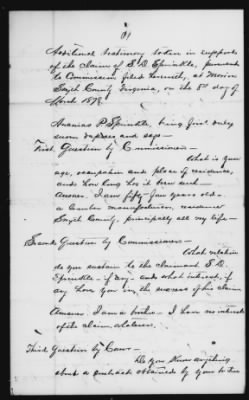 Additional testimony taken in support
of the Claim of S. D. Sprinkle, pursuant
to Commission filed herewith, at Marion
Smyth County Virginia, on the 8th day of
March 1878
Ananias P Sprinkle, being first duly
sworn deposes and says —
First Question by Commissioner —
What is your
age, occupation and place of residence,
and how long has it been such —
Answer. I am fifty four years old —
a manufacturer, residence
Smyth County, principally all my life —
Second Question by Commissioner —
What relation
do you sustain to the claimant S. D.
Sprinkle — if any — and what interest, if
any have you in the success of his claim
Answer I am a brother — I have no interest
in the claim whatever.
Third Question by Com —
Do you know anything
about a contract obtained by you to